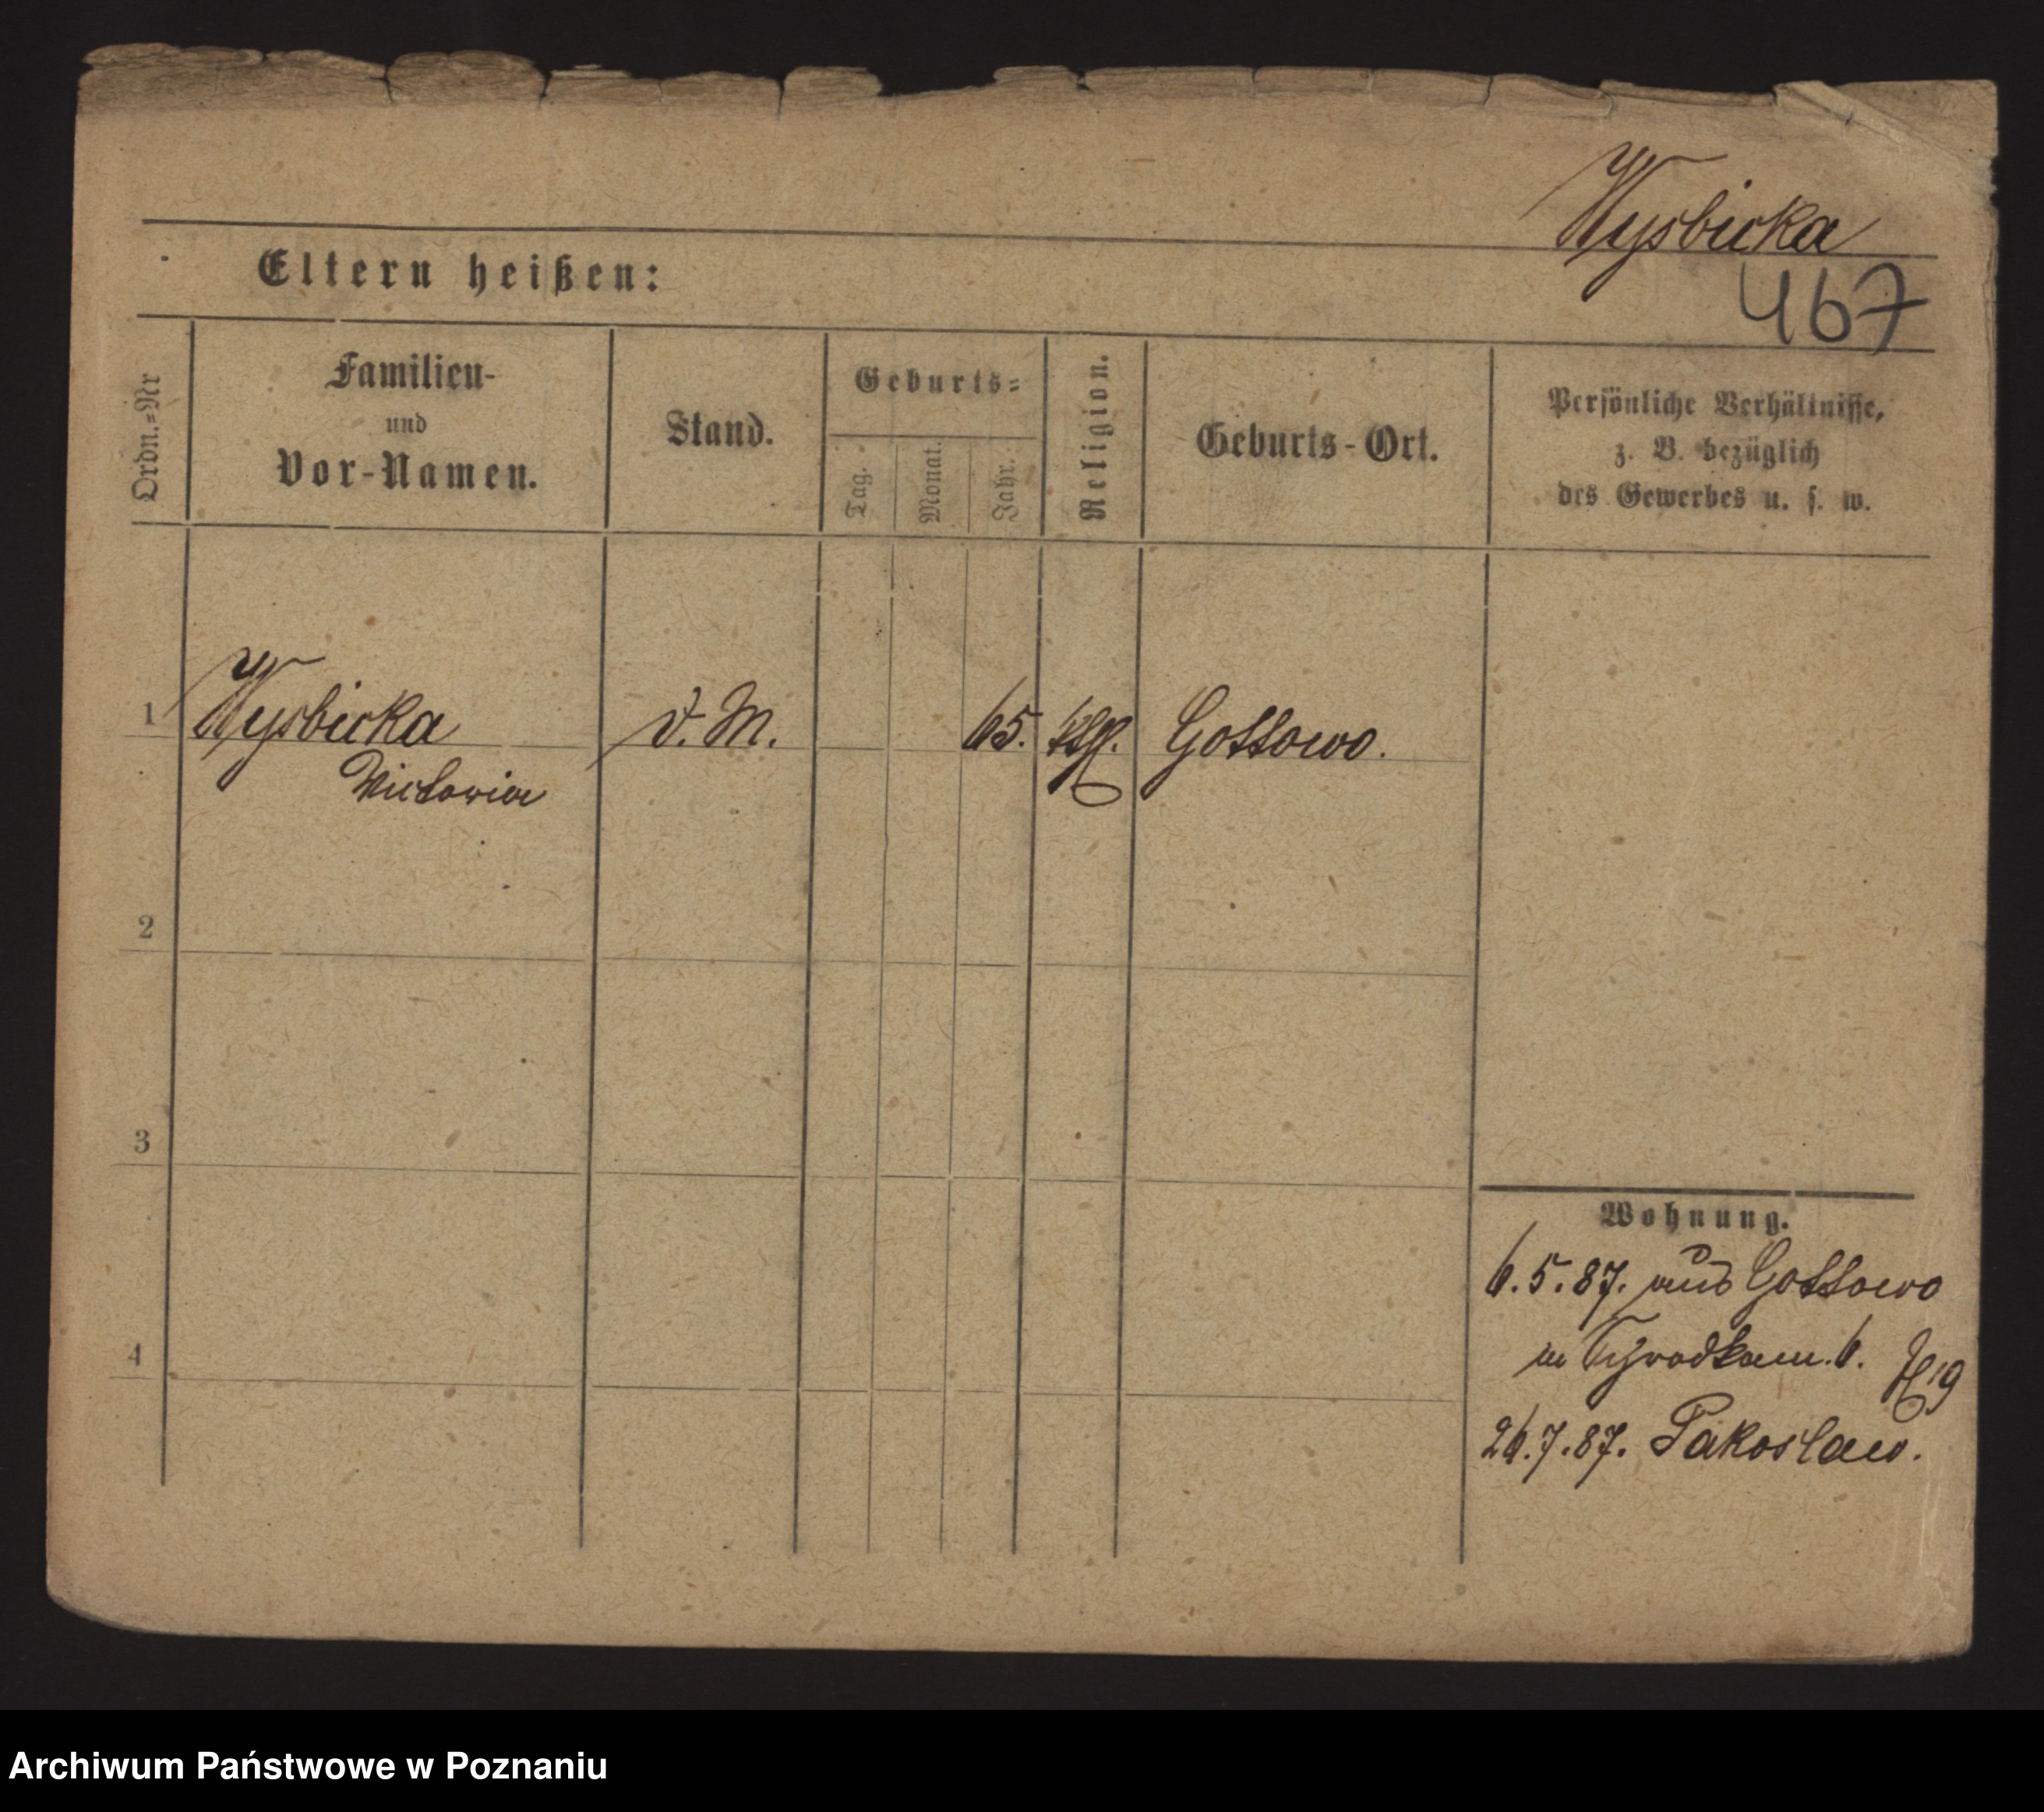 Wysbicka
Eltern heißen:
467
Ordn.=Nr
Familien-
und
Vor-Namen.
Stand.
Geburts=
Tag.
Monat.
Jahr.
Religion.
Geburts-Ort.
Persönliche Verhältnisse,
z. B. bezüglich
des Gewerbes u. s. w.
1 Wysbicka d. M. 65. Gottowo.
Victoria
2
3
4
Wohnung.
6.5.87. aus Gottowo
26.7.87. Pakoslaw.
Archiwum Państwowe w Poznaniu